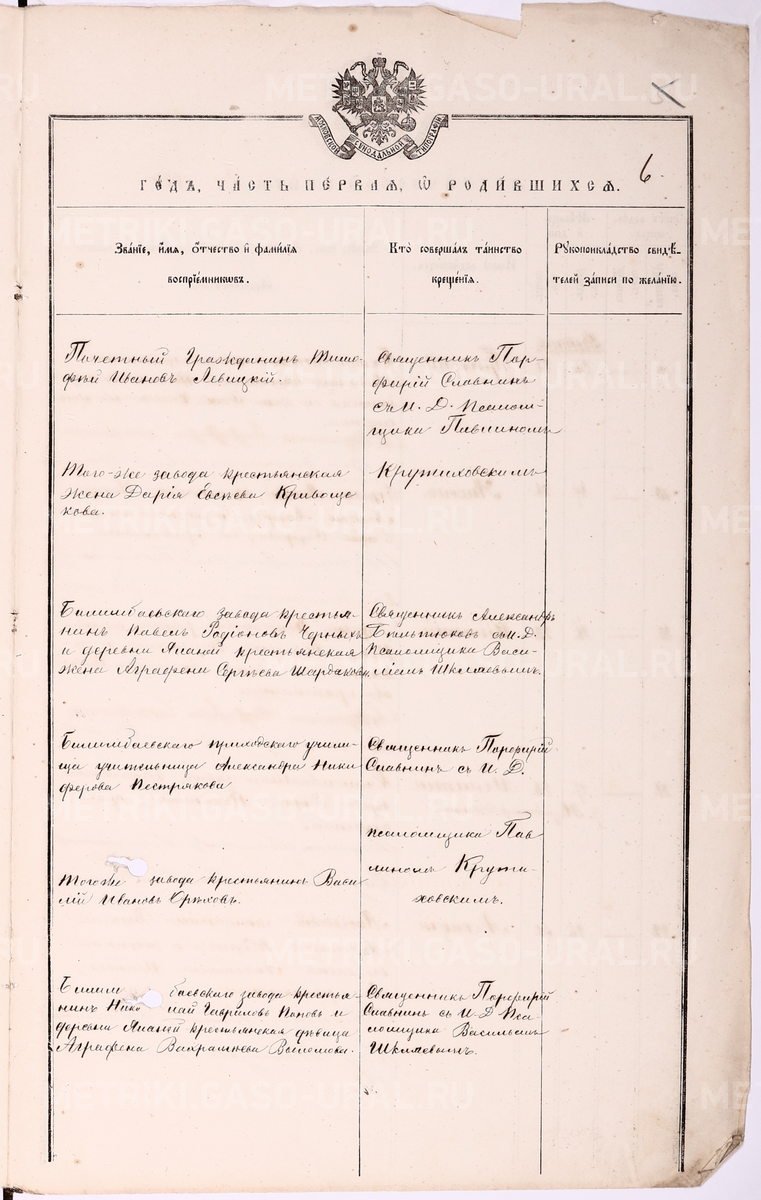 МОСКОВСКОЙ СѴНОДАЛЬНОЙ ТИПОГРАФІИ
6.
ГО́ДЪ, ЧА́СТЬ ПЕ́РВАЯ, Ѡ РОДИ́ВШИХСЯ.
Зва́нїе, и́мѧ, ѻ́тчество и фами́лїѧ
воспрїе́мниковъ.
Кто̀ соверша́лъ та́инство
креще́нїѧ.
Рꙋкоприкла́дство свидѣ́-
телей за́писи по жела́нїю.
Почетный Гражданинъ Тимо-
фей Ивановъ Левицкій.
Священникъ Пор-
фирій Славнинъ
съ И. Д. Псалом-
щика Павлиномъ
Крутиховскимъ
Того-же завода крестьянская
жена Дарія Евсѣева Кривоще
кова.
Билимбаевскаго завода крестья-
нинъ Павелъ Родіоновъ Черныхъ
и деревни крестьянская
жена Аграфена Сергѣева
Священникъ Александръ
съ И. Д.
Псаломщика Васи-
ліемъ
Билимбаевскаго приходскаго учили-
ща учительница Александра Ники
форова Пестрякова
Священникъ Порфирій
Славнинъ съ И. Д.
псаломщика Пав
линомъ Крути-
ховскимъ.
Тогоже завода крестьянинъ Васи
лій Ивановъ Орѣховъ.
Билим баевскаго завода крестья-
нинъ Нико лай Гавриловъ Поповъ и
деревни крестьянская дѣвица
Аграфена Вахрамѣева
Священникъ Порфирій
Славнинъ съ И. Д Пса-
ломщика Васильемъ
METRIKI.GASO-URAL.RU